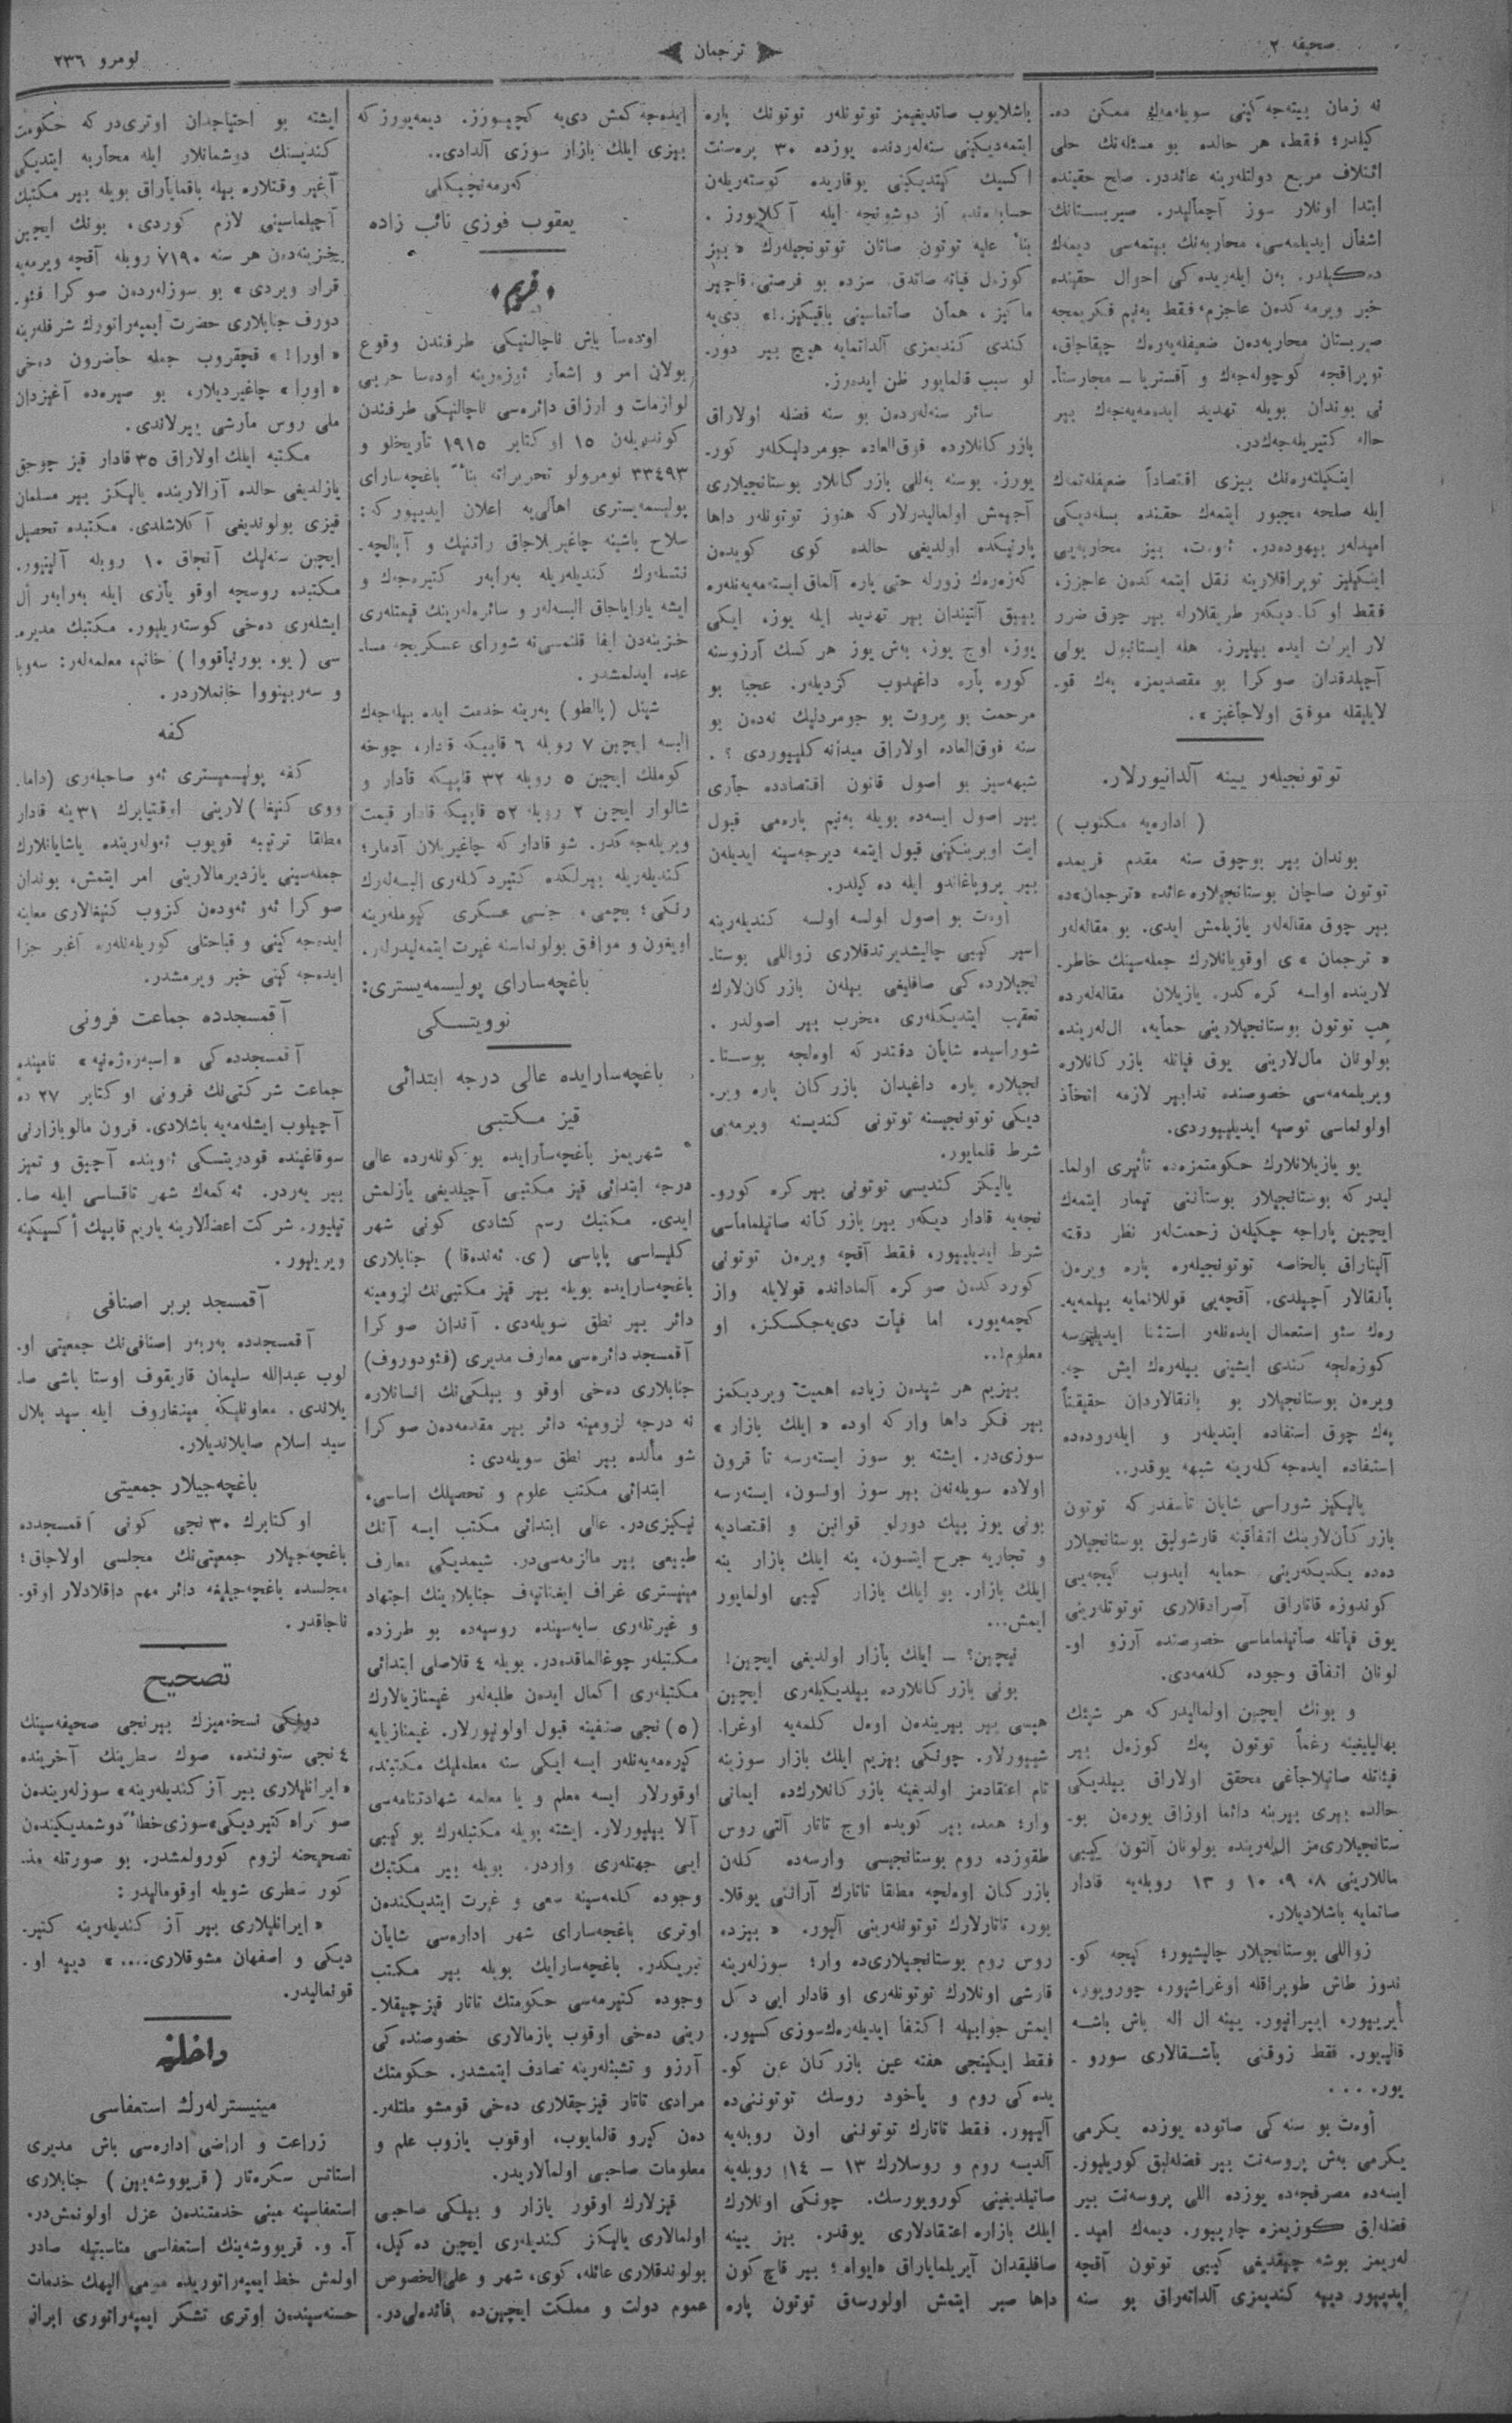 صحیفه ٢
ترجمان
نومرو ٢٣٦
نه زمان بیته‌جه‌کینی سویله‌مه‌ك ممکن ده‌-
کیلدر؛ فقط، هر حالده بو مسئله‌نك حلی
ائتلاف مربع دولتلرینه عائددر. صلح حقینده
ابتدا اونلار سوز آچمالیدر. صیربستانك
اشغال ایدیلمه‌سی، محاربه‌نك بیتمه‌سی دیمه‌ك
ده‌کیلدر. به‌ن ایله‌ریده‌کی احوال حقینده
خبر ویرمه‌کدن عاجزم، فقط به‌نیم فکریمجه
صیربستان محاربه‌دن ضعیفله‌یه‌رك چیقاجاق،
توپراقجه کوچوله‌جه‌ك و آفستریا ــ مجارستا-
نی بوندان بویله تهدید ایده‌مه‌یه‌جه‌ك بیر
حاله کتیریله‌جه‌کدر.
اینکیلتره‌نك بیزی اقتصاداً ضعیفله‌تمه‌ك
ایله صلحه مجبور ایتمه‌ك حقنده بسله‌دیکی
امیدلەر بیهوده‌در. ئه‌وت، بیز محاربه‌یی
اینکیلیز توپراقلارینه نقل ایتمه‌کدن عاجزز،
فقط اوکا دیکەر طریقلارله بیر چوق ضرر
لار ایراث ایده بیلیرز. هله ایستانبول یولی
آچیلدقدان صوکرا بو مقصدیمزه په‌ك قو-
لایلیقله موفق اولاجاغیز».
توتونجیلەر یینه آلدانیورلار.
( اداره‌یه مکتوب )
بوندان بیر بوچوق سنه مقدم قریمده
توتون صاچان بوستانجیلاره عائده «ترجمان»ده
بیر چوق مقاله‌لەر یازیلمش ایدی. بو مقاله‌لەر
« ترجمان » ی اوقویانلارك جمله‌سینك خاطر-
لارینده اولسه کره‌کدر. یازیلان مقاله‌لەرده
هپ توتون بوستانجیلارینی حمایه، ال‌لەرینده
بولونان مال‌لارینی یوق فیاتله بازرکانلاره
ویریلمه‌مه‌سی خصوصنده تدابیر لازمه اتخاذ
اولونماسی توصیه ایدیلییوردی.
بو یازیلانلارك حکومتمزه‌ده تأثیری اولما-
لیدر که بوستانجیلار بوستاننی تیمار ایتمه‌ك
ایچین پاراجه چکیلەن زحمت‌لەر نظر دقته
آلیناراق بالخاصه توتونجیلەره پاره ویرەن
بانقالار آچیلدی. آقچه‌یی قوللانمایه بیلمه‌یه-
ره‌ك سئو استعمال ایده‌نلەر استثنا ایدیلیرسه
کوزه‌لجه کندی ایشینی بیله‌ره‌ك ایش چه-
ویرەن بوستانجیلار بو بانقالاردان حقیقتاً
په‌ك چوق استفاده ایتدیلەر و ایله‌روده‌ده
استفاده ایده‌جه‌کلەرینه شبهه یوقدر..
یالیکز شوراسی شایان تأسفدر که توتون
بازرکان‌لارینك اتفاقینه قارشولیق بوستانجیلار
ده‌ده یکدیکەرینی حمایه ایدوب کیجه‌یی
کوندوزه قاتاراق آصرادقلاری توتونلەرینی
یوق فیأتله صاتیلماماسی خصوصنده آرزو او-
لونان اتفاق وجوده کلمه‌دی.
و بونك ایچین اولمالیدر که هر شیئك
بهالیلیغینه رغماً توتون په‌ك کوزه‌ل بیر
فیئاتله صاتیلاجأغی محقق اولاراق بیلدیکی
حالده بیری بیرینه دائما اوزاق یورەن بو-
ستانجیلاریمز اللەرینده بولونان آلتون کیبی
ماللارینی ٨، ٩، ١٠ و ١٣ روبله‌یه قادار
صاتمایه باشلادیلار.
زواللی بوستانجیلار چالیشیور؛ کیجه کو-
ندوز طاش طوپراقله اوغراشیور، چورویور،
أریییور، ایپرانیور. یینه ال اله باش باشـه
قالیبور. فقط زوقنی بأشـقالاری سورو-
یور....
أوەت بو سنه‌کی صاتوده یوزده یکرمی
یکرمی به‌ش پروسه‌نت بیر فضله‌لیق کورییلیور.
ایسه‌ده مصرفجه‌ده یوزده اللی پروسه‌نت بیر
فضله‌لق کوزیمزه چارپیور. دیمه‌ك امید-
لەریمز بوشه چیقدیغی کیبی توتون آقچه
ایدییور دییه کندیمزی آلداتەراق بو سنه
باشلایوب صاتدیغیمز توتونلەر توتونك پاره
ایتمه‌دیکینی سنه‌لەردنده یوزده ٣٠ پره‌سنت
اکسیك کیتدیکینی یوقاریده کوسته‌ریلەن
حسابله‌نده آز دوشونجه ایله آکلایورز.
بنأ علیه توتون صاتان توتونجیلەرك «بیز
کوزه‌ل فیاته صاتدق. سزده بو فرصتی قاچیر
ماکیز، همأن صأتماسینی باقیکیز.!» دی‌یه
کندی کندیمزی آلداتمایه هیچ بیر دور-
لو سبب قالمایور ظن ایده‌رز.
سائر سنه‌لەردن بو سنه فضله اولاراق
بازرکانلارده فوق‌العاده جومردلیکلەر کور-
یورز. بوسنه به‌للی بازرکانلار بوستانجیلاری
آجیمش اولمالیدرلار که هنوز توتونلەر داها
یارنیکده اولدیغی حالده کوی کویدەن
که‌زه‌ره‌ك زورله حتی پاره آلماق ایسته‌مه‌یه‌نلەره
بییق آلتیندان بیر تهدید ایله یوز، ایکی
یوز، اوچ یوز، به‌ش یوز هر کسك آرزوسنه
کوره پاره داغیدوب کزدیلەر. عجبا بو
مرحمت بو مروت بو جومردلیك نه‌دەن بو
سنه فوق‌العاده اولاراق میدانه کلییوردی؟.
شبهه‌سیز بو اصول قانون اقتصادده جاری
بیر اصول ایسه‌ده بویله به‌نیم پاره‌می قبول
ایت اوبرینکینی قبول ایتمه دیرجه‌سینه ایدیلەن
بیر پروپاغاندو ایله ده‌کیلدر.
اوەت بو اصول اولسه اولسه کندیلەرینه
اسیر کیبی چالیشدیرتدقلاری زواللی بوستا-
نجیلارده‌کی صافلیغی بیلەن بازرکان‌لارك
تعقیب ایتدیکلەری مخرب بیر اصولدر.
شوراسیده شایان دقتدر که اوه‌لجه بوستا-
نجیلاره پاره داغیدان بازرکان پاره ویر-
دیکی توتونجیسنه توتونی کندیسنه ویرمه‌یی
شرط قلمایور.
یالیکز کندیسی توتونی بیر کره کورو-
نجه‌یه قادار دیکەر بیر بازرکأنه صاتیلمامأسی
شرط ایدیلییور، فقط آقچه ویرەن توتونی
کوردکدن صوکره آلماداندە قولایله واز
کچمه‌یور، اما فیأت دی‌یه‌جکسکز، او
معلوم!..
بیزیم هر شیدەن زیاده اهمیت ویردیکمز
بیر فکر داها وار که اوده « ایلك بازار »
سوزی‌در. ایشته بو سوز ایسته‌رسه تأ قرون
اولاده سویله‌نەن بیر سوز اولسون، ایسته‌رسه
بونی یوز بیك دورلو قوانین و اقتصادیه
و تجاریه جرح ایتسون، ینه ایلك بازار ینه
ایلك بازار. بو ایلك بازار کیبی اولمایور
ایمش...
نیچین؟ ــ ایلك بأزار اولدیغی ایچین!
بونی بازرکانلارده بیلدیکلەری ایچین
هپسی بیر بیریندەن اوەل کلمه‌یه اوغرا-
شییورلار. چونکی بیزیم ایلك بازار سوزینه
تام اعتقادمز اولدیغینه بازرکانلارك‌ده ایمانی
وار؛ همده بیر کویده اوچ تاتار آلتی روس
طقوزده روم بوستانجیسی وارسه‌ده کلەن
بازرکان اوه‌لجه مطلقا تاتارك آرانتی یوقلا-
یور، تاتارلارك توتونلەرینی آلیور. « بیزده
روس روم بوستانجیلاری‌ده وار؛ سوزلەرینه
قارشی اونلارك توتونلەری او قادار ایی دکل
ایمش جوابیله اکتفأ ایدیله‌ره‌ك سوزی کسیور.
فقط ایکینجی هفته عین بازرکان عین کو-
یده‌کی روم و یأخود روسك توتوننی‌ده
آلییور. فقط تاتارك توتوننی اون روبله‌یه
آلدیسه روم و روسلارك ١٣ ــ ١٤ روبله‌یه
صاتیلدیغینی کورویورسك. چونکی اونلارك
ایلك بازاره اعتقادلاری یوقدر. بیز یینه
صافلیقدان آیریلمایاراق «ایواه؛ بیر قاچ کون
داها صبر ایتمش اولورسەق توتون پاره
ایده‌جه‌کمش دی‌یه کچییورز. دیمه‌یورز که
بیزی ایلك بازار سوزی آلدادی..
که‌رمه‌نچیکلی
یعقوب فوزی نائب زاده
قریم
اوده‌سأ باش ناچالنیکی طرفندن وقوع
بولان امر و اشعار ئوزه‌رینه اوده‌سا حربی
لوازمات و ارزاق دائره‌سی ناچالنیکی طرفندن
کوندریلەن ١٥ اوکتابر ١٩١٥ تأریخلو و
٣٣٤٩٣ نومرولو تحریراته بناً باغچه‌سارای
پولیسمه‌یستری اهالی‌یه اعلان ایدییور که:
سلاح باشینه چاغیریلاجاق راتنیك و آپالچه-
نتسلەرك کندیلەریله به‌رابەر کتیره‌جه‌ك و
ایشه یارایاجاق البسه‌لەر و سائره‌لەرینك قیمتلەری
خزینه‌دن ایفا قلنمسی‌نه شورای عسکریجه مسا-
عده ایدلمشدر.
شینل (پالطو) یەرینه خدمت ایده بیله‌جه‌ك
البسه ایچین ٧ روبله ٦ قاپیکه قادار، چوخه
کوملك ایچین ٥ روبله ٣٢ قاپیکه قأدار و
شالوار ایچن ٢ روبله ٥٢ قاپیکه قادار قیمت
ویریله‌جه‌کدر. شو قادار که چاغیریلان آدملر؛
کندیلەریله بیرلکده کتیردکلەری البسه‌لەرك
رنکی؛ بیچمی، جنسی عسکری کیوملەرینه
اویغون و موافق بولونماسنه غیرت ایتمه‌لیدرلەر.
باغچه‌سارای پولیسمه‌یستری:
نوویتسکی
باغچه‌سارایده عالی درجه ابتدائی
قیز مکتبی
شهریمز بأغچه‌سأرایده بو کونلەرده عالی
درجه ابتدائی قیز مکتبی آچیلدیغی یأزلمش
ایدی. مکتبك رسم کشادی کونی شهر
کلیساسی پاپاسی (ی. ئه‌نده‌قا) جنابلاری
باغچه‌سارایده بویله بیر قیز مکتبی‌نك لزومینه
دائر بیر نطق سویله‌دی. آندان صوکرا
آقمسجد دائره‌سی معارف مدیری (فئودوروف)
جنابلاری دەخی اوقو و بیلکی‌نك انسانلاره
نه درجه لزومینه دائر بیر مقدمه‌دەن صوکرا
شو مألده بیر نطق سویله‌دی:
ابتدائی مکتب علوم و تحصیلك اساسی،
تیکیزی‌در. عالی ابتدائی مکتب ایسه آنك
طبیعی بیر مالزمه‌سی‌در. شیمدیکی معارف
مینیستری غراف ایغناتیەف جنابلارینك اجتهاد
و غیرتلەری سایه‌سینده روسیه‌ده بو طرزده
مکتبلەر چوغالماقده‌در. بویله ٤ قلاصلی ابتدائی
مکتبلەری اکمال ایدەن طلبه‌لەر غیمنازیالارك
(٥) نجی صنفینه قبول اولونیورلار. غیمنازیایه
کیره‌مه‌یه‌نلەر ایسه ایکی سنه معلملیك مکتبنده
اوقورلار ایسه معلم و یا معلمه شهادتنامه‌سی
آلا بیلییورلار. ایشته بویله مکتبلەرك بو کیبی
ایی جهتلەری واردر. بویله بیر مکتبك
وجوده کلمه‌سینه سعی و غیرت ایتدیکندەن
اوتری باغچه‌سارای شهر اداره‌سی شایان
تبریکدر. باغچه‌سارایك بویله بیر مکتب
وجوده کتیرمه‌سی حکومتك تاتار قیزچیقلا-
رینی دەخی اوقوب یازمالاری خصوصنده‌کی
آرزو و تشبثلەرینه تصادف ایتمشدر. حکومتك
مرادی تاتار قیزچقلاری دەخی قومشو ملتلەر-
دەن کیرو قالمایوب، اوقوب یازوب علم و
معلومات صاحبی اولمالاریدر.
قیزلارك اوقور یازار و بیلکی صاحبی
اولمالاری یالیکز کندیلەری ایچین ده‌کیل،
بولوندقلاری عائله، کوی، شهر و علی‌الخصوص
عموم دولت و مملکت ایچین‌ده فائده‌لی‌در.
ایشته بو احتیاجدان اوتری‌در که حکومت
کندیسنك دوشمانلار ایله محاربه ایتدیکی
آغیر وقتلاره بیله باقمایأراق بویله بیر مکتبك
آچیلماسینی لازم کوردی، بونك ایچین
خزینه‌دەن هر سنه ٧١٩٠ روبله آقچه ویرمه‌یه
قرار ویردی» بو سوزلەردەن صوکرا فئو-
دورف جنابلاری حضرت ایمپه‌راتورك شرفلەرینه
« اورا! » قیچقروب جمله حأضرون دەخی
« اورا » چاغیردیلار، بو صیره‌ده آغیزدان
ملی روس مأرشی ییرلاندی.
مکتبه ایلك اولاراق ٣٥ قادار قیز چوجق
یازلدیغی حالده آرالارینده یالیکز بیر مسلمان
قیزی بولوندیغی آکلاشلدی. مکتبده تحصیل
ایچین سنه‌لیك آنجاق ١٠ روبله آلینیور.
مکتبده روسچه اوقو یأزی ایله به‌رابەر ال
ایشلەری دەخی کوسته‌ریلیور. مکتبك مدیره-
سی (یو. بورلیأقووا) خانم، معلمه‌لەر: سه‌ویا
و سه‌ربینووا خانملاردر.
کفه
کفه پولیسمیستری ئەو صاحبلەری (داما-
ووی کنیغا) لارینی اوقتیابرك ٣١ ینه قادار
مطلقا ترتیبه قویوب ئەولەرینده یاشایانلارك
جمله‌سینی یازدیرمالارینی امر ایتمش، بوندان
صوکرا ئەو ئەودەن کزوب کنیغالاری معاینه
ایده‌جه‌کینی و قباحتلی کوریله‌نلەره آغیر جزا
ایده‌جه‌کینی خبر ویرمشدر.
آقمسجدده جماعت فرونی
آقمسجدده‌کی « اسبه‌ره‌ژه‌نیه » نامینده
جماعت شرکتی‌نك فرونی اوکتابر ٢٧ ده
آچیلوب ایشله‌مه‌یه باشلادی. فرون مالوبازارنی
سوقاغینده قودریتسکی ئەوینده آچیق و تمیز
بیر یەردر. ئه‌کمه‌ك شهر تاقساسی ایله صا-
تیلیور. شرکت اعضألارینه یاریم قاپیك أکسیکینه
ویریلیور.
آقمسجد بربر اصنافی
آقمسجدده به‌ربەر اصنافی‌نك جمعیتی او-
لوب عبدالله سلیمان قاریقوف اوستا باشی صا-
یلاندی. معاونلیکه مینغاروف ایله سید بلال
سید اسلام صایلاندیلار.
باغچه‌جیلار جمعیتی
اوکتابرك ٣٠نجی کونی آقمسجدده
باغچه‌جیلار جمعیتی‌نك مجلسی اولاجاق؛
مجلسده باغچه‌جیلیغه دائر مهم داقلادلار اوقو-
ناجاقدر.
تصحیح
دونکی نسخه‌میزك بیرنجی صحیفه‌سینك
٤نجی ستوننده، صوك سطرینك آخرینده
«ایرانلیلاری بیر آز کندیلەرینه» سوزلەریندەن
صوکراه کتیردیکی» سوزی خطأً دوشمدیکیندەن
تصحیحنه لزوم کورولمشدر. بو صورتله مذ-
کور سطری شویله اوقومالیدر:
« ایرانلیلاری بیر آز کندیلەرینه کتیر-
دیکی و اصفهان مشوقلاری....» دییه او-
قونمالیدر.
داخلیه
مینیسترلەرك استعفاسی
زراعت و اراضی اداره‌سی باش مدیری
استاتس سکره‌تار (قریووشه‌یین) جنابلاری
استعفاسینه مبنی خدمتندەن عزل اولونمش‌در.
آ. و. قریووشه‌ینك استعفاسی مناسبتیله صادر
اولمش خط ایمپه‌راتوریده مومی الیهك خدمات
حسنه‌سیندەن اوتری تشکر ایمپه‌راتوری ایراند